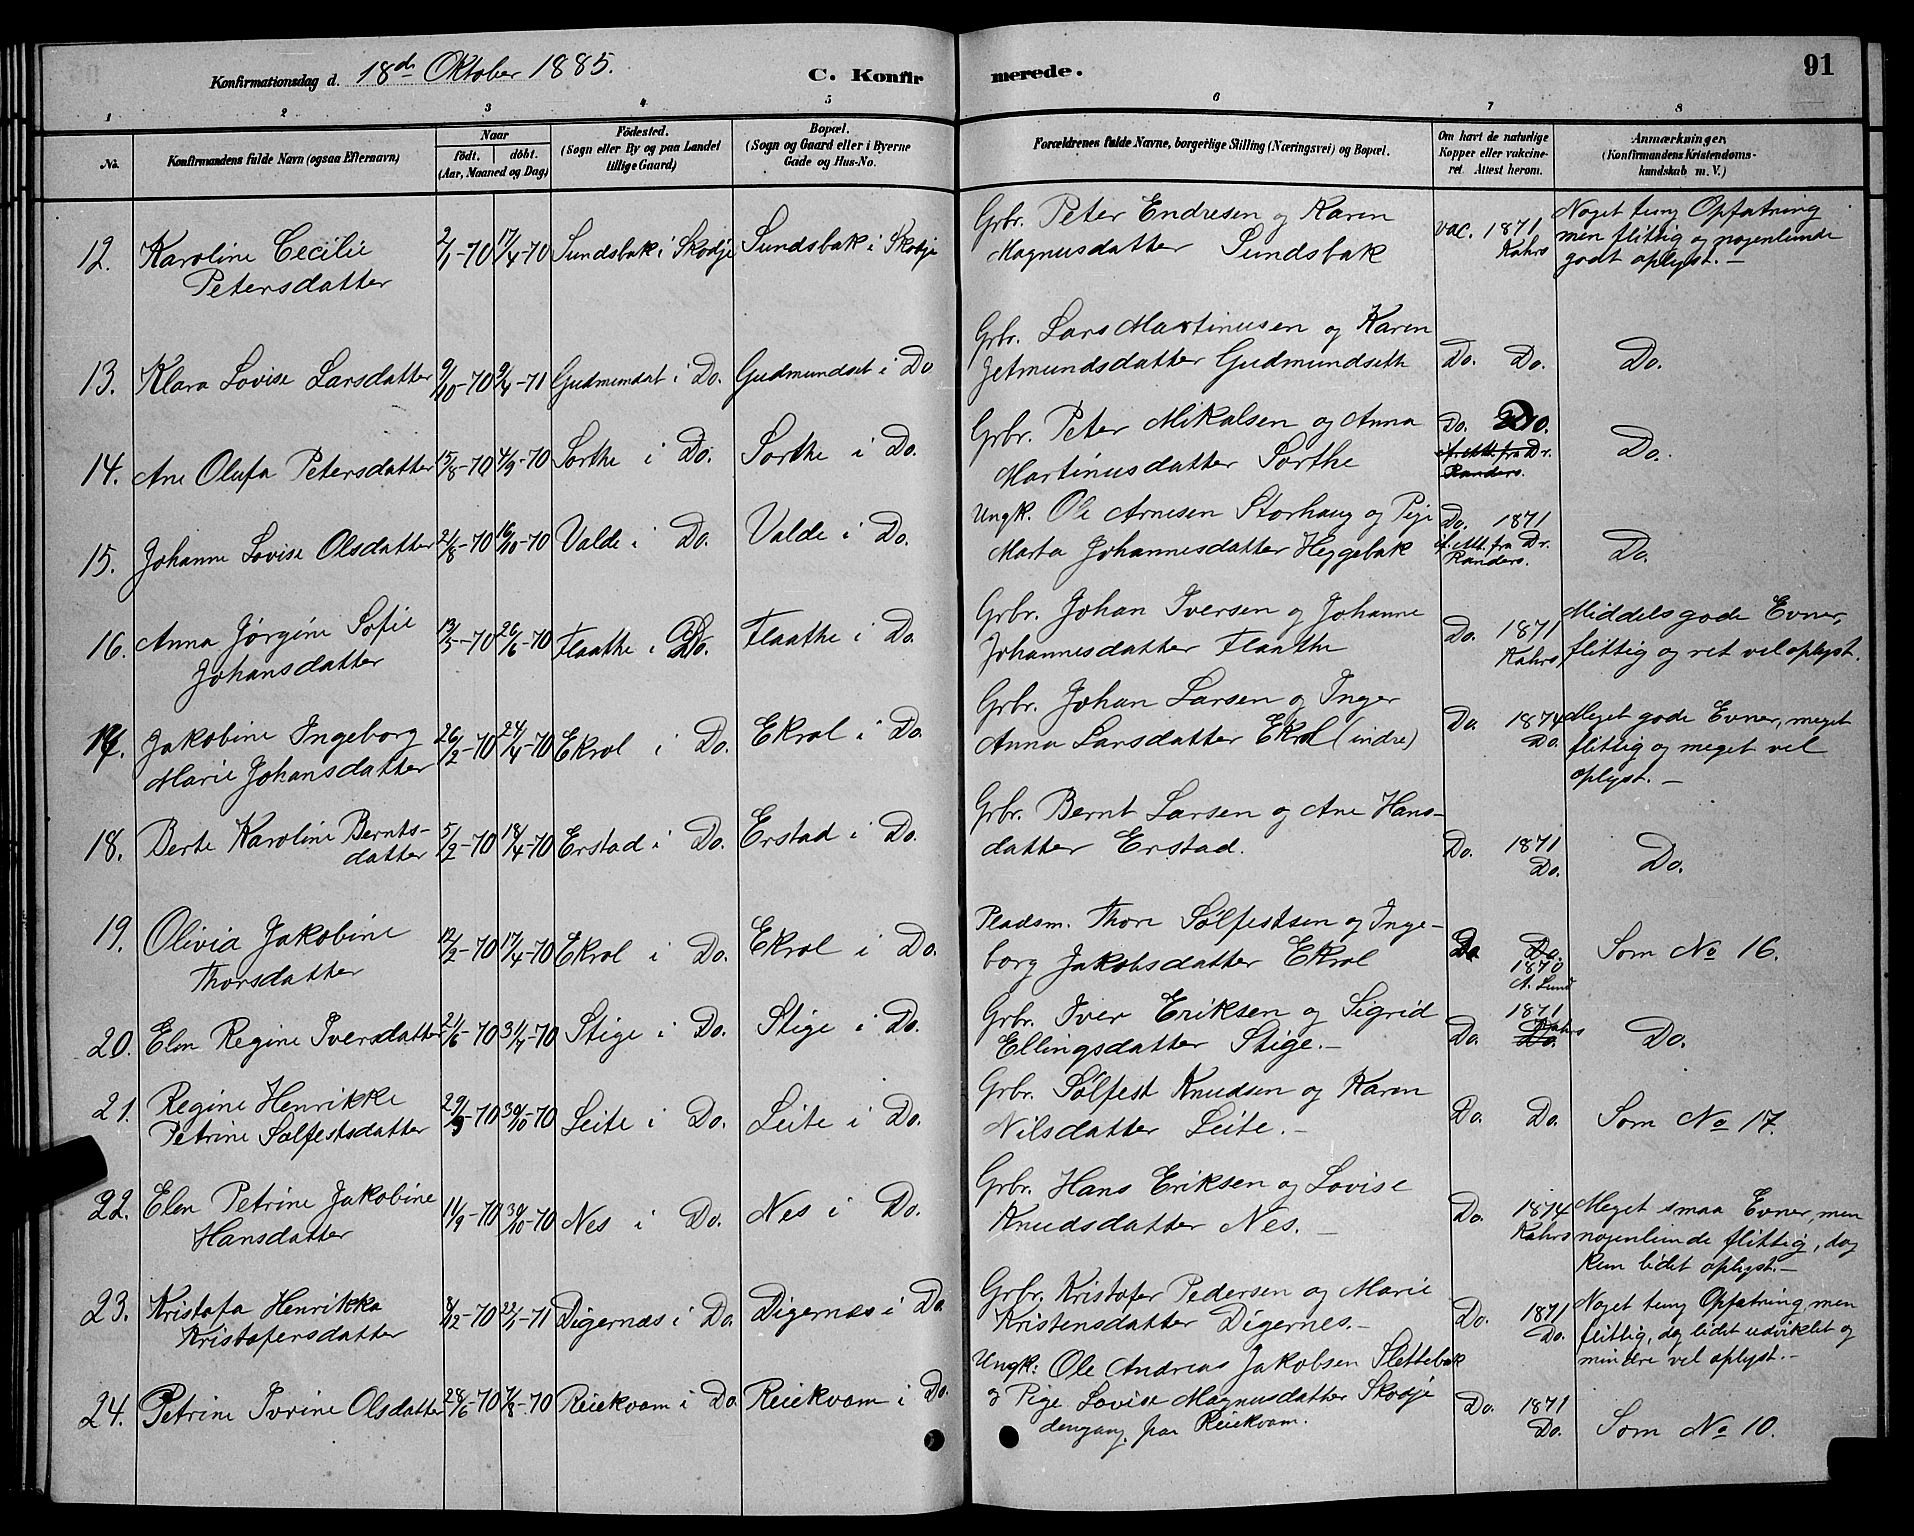 Konfirmationsdag d. 18de Oktober 1885.
C. Konfir
merede.
91
1 2 3 4 5 6 7 8
No. Konfirmandens fulde Navn (ogsaa Efternavn)
Naar
født. døbt.
(Aar, Maaned og Dag)
Fødested.
(Sogn eller By og paa Landet
tillige Gaard)
Bopæl.
(Sogn og Gaard eller i Byerne
Gade og Hus-No.
Forældrenes fulde Navne, borgerlige Stilling (Næringsvei) og Bopæl.
Om havt de naturlige
Kopper eller vakcine-
ret. Attest herom.
Anmærkninger,
(Konfirmandens Kristendoms-
kundskab m. V.)
12. Karoline Cecilie
Petersdatter
2/1-70 17/4-70 Sundsbak i Skodje Sundsbak i Skodje
Grbr. Peter Endresen og Karen
Magnusdatter Sundsbak
vac. 1871
Kahrs
Noget tung Opfatning
men flittig og nogenlunde
godt oplyst.-
13. Klara Lovise Larsdatter 9/10-70 9/4-71 Gudmundset i Do. Gudmundset i Do
Grbr. Lars Martinusen og Karen
Jetmundsdatter Gudmundseth
Do. Do. Do.
14. Ane Olufa Petersdatter 15/8-70 4/9-70 Sorthe i Do. Sorthe i Do.
Grbr. Peter Mikalsen og Anna
Martinusdatter Sorthe
Do. Do.
if. Att. fra Dr.
Randers.
Do.
15. Johanne Lovise Olsdatter 21/8-70 16/10-70 Valde i Do. Valde i Do.
Ungk. Ole Arnesen Storhaug og Pige
Marta Johannesdatter Heggebak
Do. 1871
if. Att. fra Dr.
Randers.
Do.
16. Anna Jørgine Sofie
Johansdatter
13/5-70 26/6-70 Flaathe i Do. Flaathe i Do.
Grbr. Johan Iversen og Johanne
Johannesdatter Flaathe
Do. 1871
Kahrs
Middels gode Evner,
flittig og ret vel oplyst.
17. Jakobine Ingeborg
Marie Johansdatter
26/2-70 24/4-70 Ekrol i Do. Ekrol i Do.
Grbr. Johan Larsen og Inger
Anna Larsdatter Ekrol (indre)
Do. 1874
Do.
Meget gode Evner, meget
flittig og meget vel
oplyst.-
18. Berte Karoline Bernts-
datter
5/2-70 18/4-70 Erstad i Do. Erstad i Do.
Grbr. Bernt Larsen og Ane Hans-
datter Erstad.
Do. 1871
Do.
Do.
19. Olivia Jakobine
Thorsdatter
12/2-70 17/4-70 Ekrol i Do. Ekrol i Do.
Pladsm. Thore Sølfestsen og Inge-
borg Jakobsdatter Ekrol
Do Do.
1870
A. Lund
Som No 16.
20. Elen Regine Iversdatter 21/6-70 31/7-70 Stige i Do. Stige i Do.
Grbr. Iver Eriksen og Sigrid
Ellingsdatter Stige.-
Do. 1871
Kahrs
Do.
Do.
21. Regine Henrikke
Petrine Sølfestsdatter
29/9-70 30/10-70 Leite i Do. Leite i Do.
Grbr. Sølfest Knudsen og Karen
Nilsdatter Leite.-
Do. Do. Som No 17.
22. Elen Petrine Jakobine
Hansdatter
11/9-70 30/10-70 Nes i Do. Nes i Do.
Grbr. Hans Eriksen og Lovise
Knudsdatter Nes.-
Do. 1874
Kahrs
Meget smaa Evner, men
nogenlunde flittig, dog
kun lidet oplyst.-
23. Kristofa Henrikka
Kristofersdatter
8/12-70 22/1-71 Digernes i Do. Digernes i Do.
Grbr. Kristofer Pedersen og Marie
Kristensdatter Digernes.-
Do. 1871
Do.
Noget tung Opfatning, men
flittig, dog lidet udviklet og
mindre vel oplyst.-
24. Petrine Ivrine Olsdatter 28/6-70 7/8-70 Reiekvam i Do. Reiekvam i Do.
Ungk: Ole Andreas Jakobsen Slettebak
og Pige Lovise Magnusdatter Skodje
dengang paa Reiekvam.
Do. 1871
Do.
Som No 10.